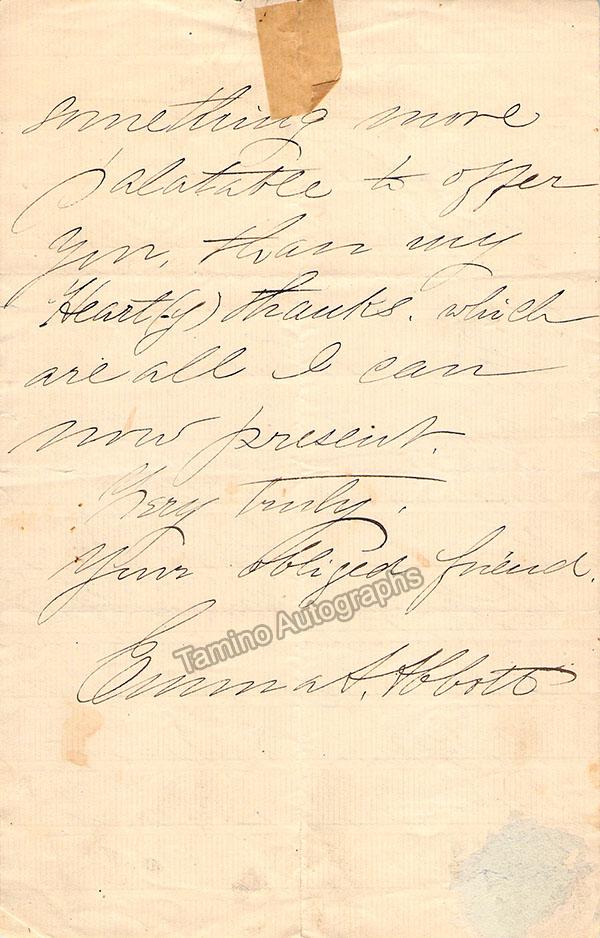 something more
palatable to offer
you, than my
Heart(y) thanks. which
are all I can
now present.
Very Truly,
Your obliged friend.
Tamino Autographs
Emma A. Abbott